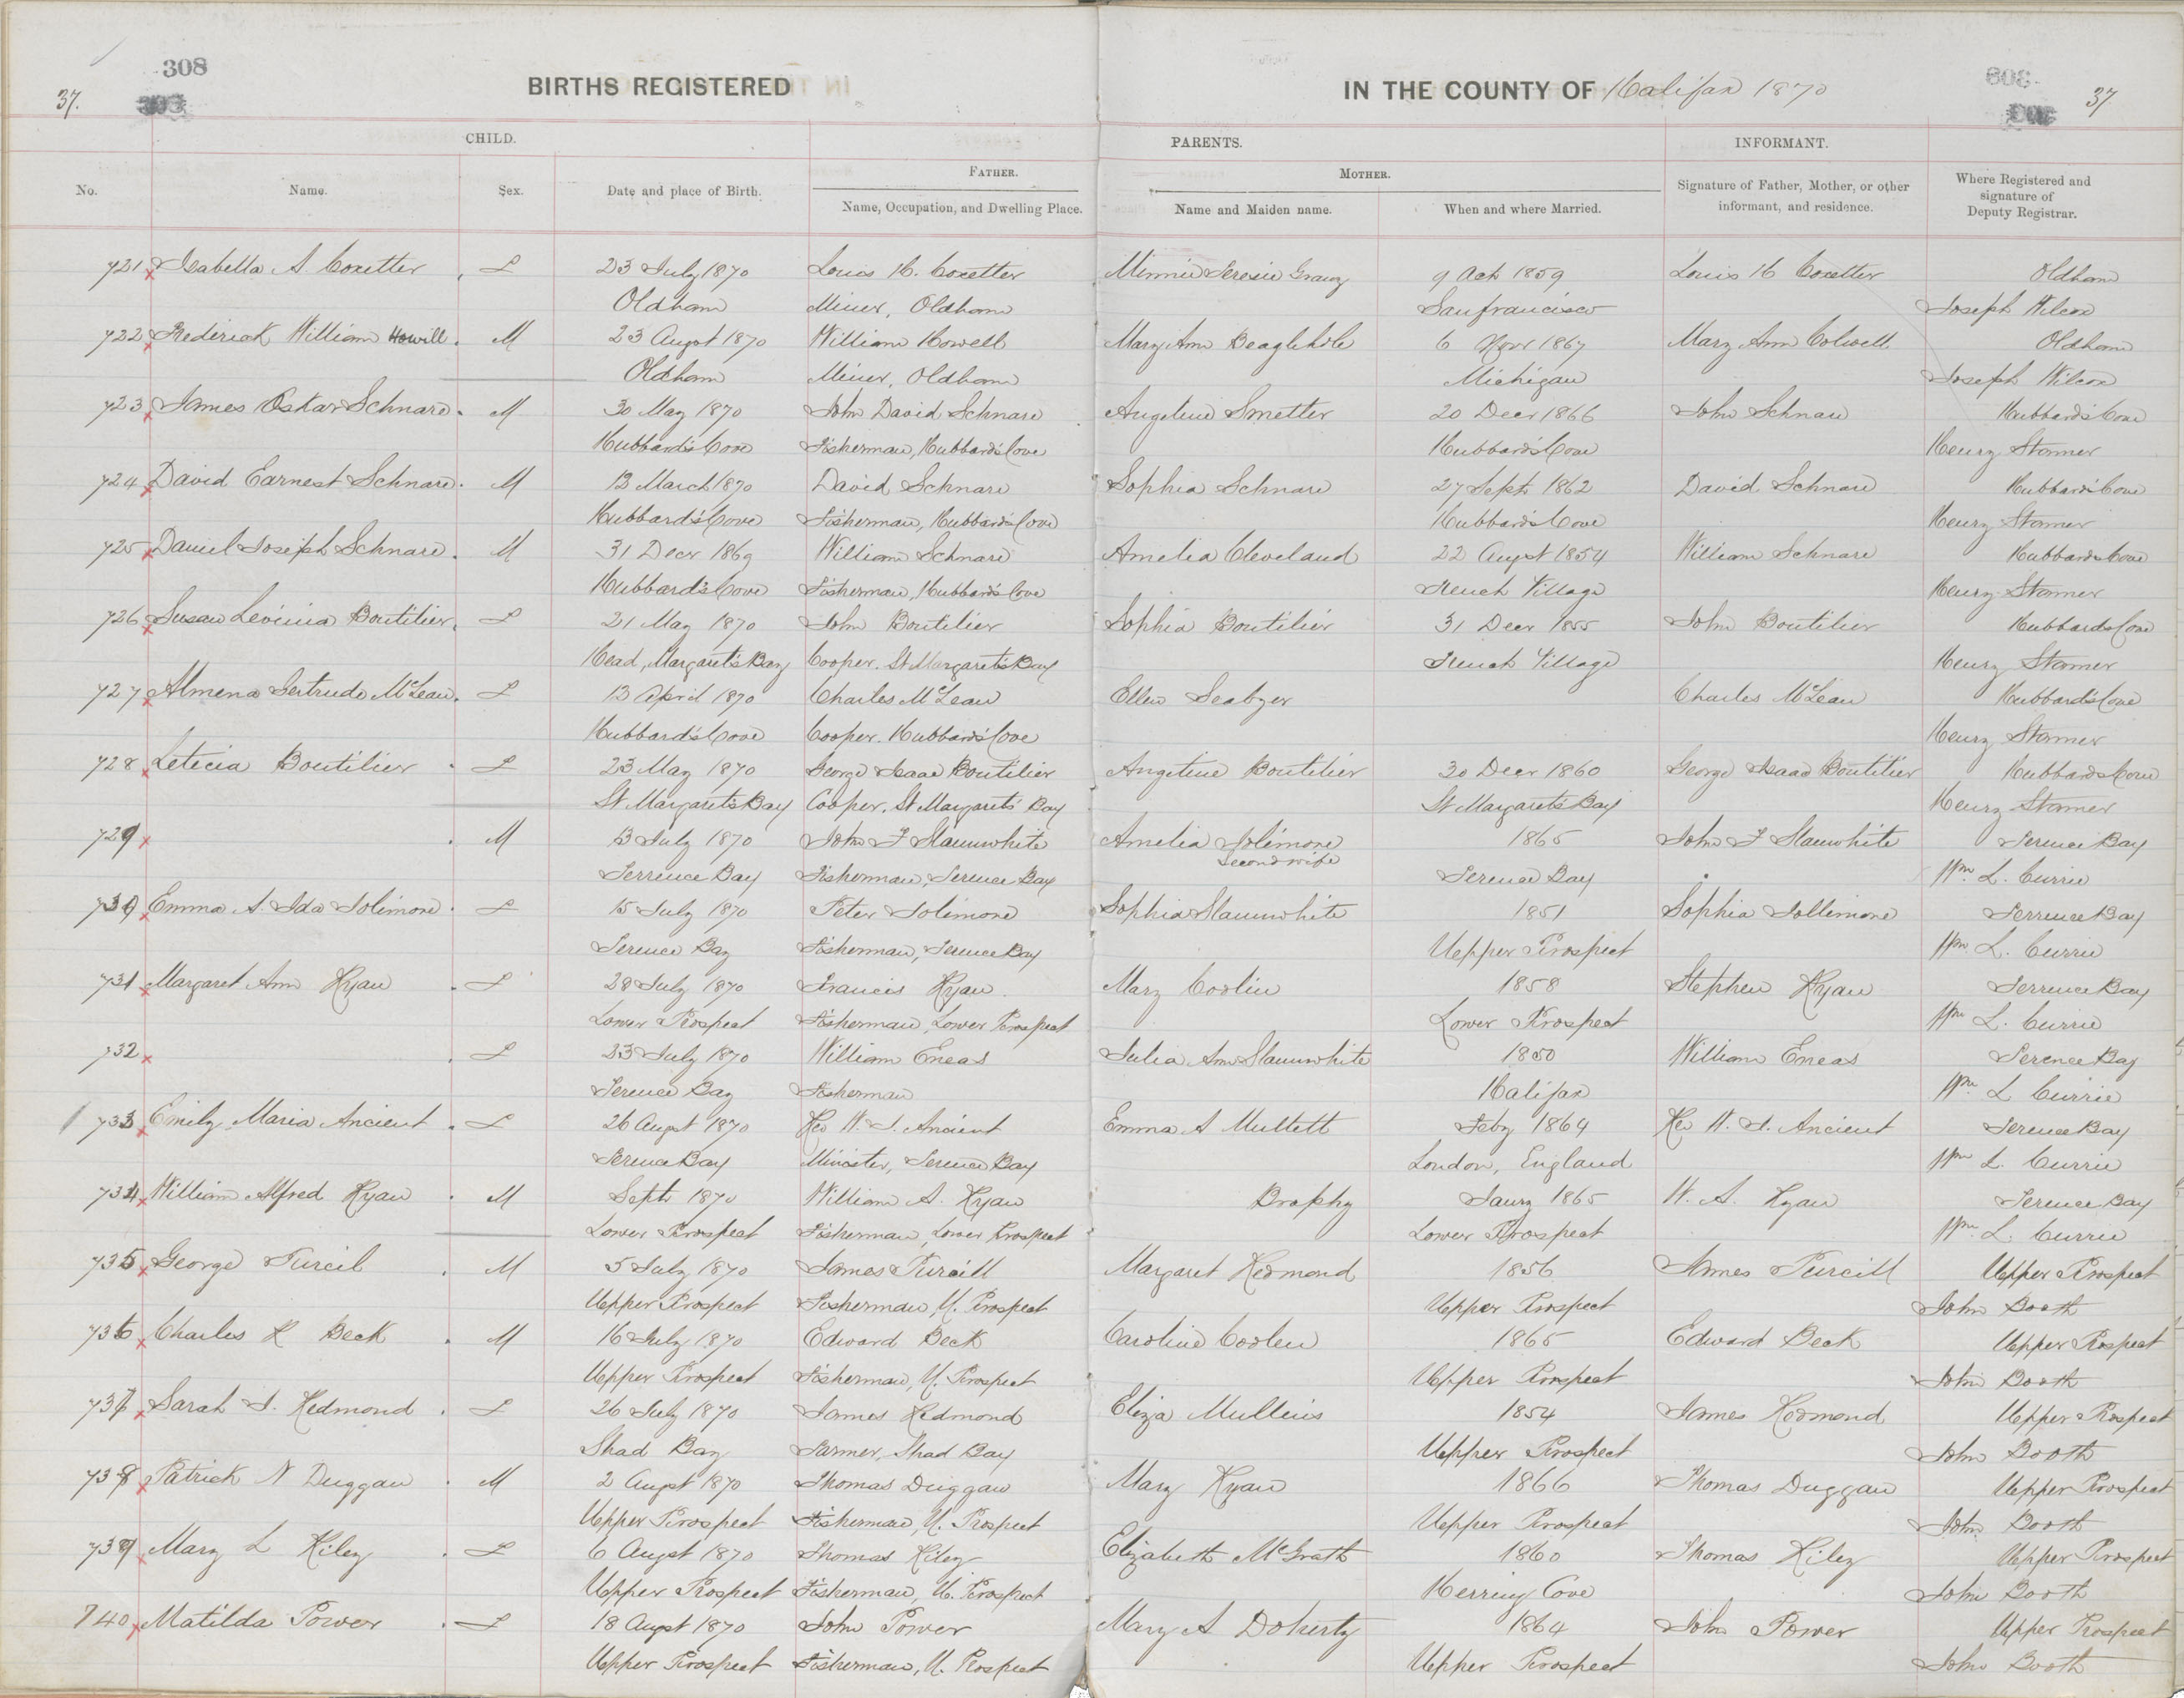 308
37.
BIRTHS REGISTERED
IN THE COUNTY OF Halifax 1870
308
37
CHILD.
PARENTS.
INFORMANT.
No.
Name.
Sex.
Date and place of Birth.
FATHER.
Name, Occupation, and Dwelling Place.
MOTHER.
Name and Maiden name.
When and where Married.
Signature of Father, Mother, or other informant, and residence.
Where Registered and signature of Deputy Registrar.
721 Isabella A. Coxetter F 23 July 1870 Louis H. Coxetter Minnie Teresia 9 Oct 1859 Louis H Coxetter Oldham
Oldham Miner, Oldham Sanfrancisco Joseph Wilcox
722 Frederick William Howill. M 23 Augst 1870 William Howell Mary Ann Beaglehole 6 Novr 1867 Mary Ann Colwell Oldham
Oldham Miner, Oldham Michigan Joseph Wilcox
723 James Oskar Schnare. M 30 May 1870 John David Schnare Angeline Smetter 20 Decr 1866 John Schnare Hubbard's Cove
Hubbard's Cove Fisherman, Hubbard's Cove Hubbard's Cove Henry Stamer
724 David Earnest Schnare. M 13 March 1870 David Schnare Sophia Schnare 27 Sept 1862 David Schnare Hubbard's Cove
Hubbard's Cove Fisherman, Hubbard's Cove Hubbard's Cove Henry Stamer
725 Daniel Joseph Schnare. M 31 Decr 1869 William Schnare Amelia Cleveland 22 Augst 1854 William Schnare Hubbards Cove
Hubbard's Cove Fisherman, Hubbard's Cove French Village Henry Stamer
726 Susan Levinia Boutilier. F 21 May 1870 John Boutilier Sophia Boutilier 31 Decr 1855 John Boutilier Hubbards Cove
Head, Margaret's Bay Cooper. St Margaret's Bay French Village Henry Stamer
727 Almena Gertrude McLean. F 13 April 1870 Charles McLean Ellen Seabyer Charles McLean Hubbard's Cove
Hubbard's Cove Cooper. Hubbard's Cove Henry Stamer
728 Leticia Boutilier F 23 May 1870 George Isaac Boutilier Angeline Boutilier 30 Decr 1860 George Isaac Boutilier Hubbards Cove
St Margaret's Bay Cooper, St Margarets' Bay St Margaret's Bay Henry Stamer
729 M 13 July 1870 John F Slaunwhite Amelia Jolimore 1865 John F Slaunwhite Terence Bay
second wife
Terrence Bay Fisherman, Terence Bay Terence Bay Wm. L. Currie
730 Emma A. Ida Jolimore F 15 July 1870 Peter Jolimore Sophia Slaunwhite 1851 Sophia Jollimore Terrence Bay
Terence Bay Fisherman, Terence Bay Uepper Prospect Wm. L. Currie
731 Margaret Ann Ryan F 28 July 1870 Francis Ryan Mary Coolin 1858 Stephen Ryan Terrence Bay
Lower Prospect Fisherman, Lower Prospect Lower Prospect Wm L. Currie
732 F 23 July 1870 William Eneas Julia Ann Slaunwhite 1850 William Eneas Terence Bay
Terence Bay Fisherman Halifax Wm L Currie
733 Emily Maria Ancient F 26 Augst 1870 Rev W. J. Ancient Emma A Mullett Feby 1864 Rev W. J. Ancient Terence Bay
Terence Bay Minister, Terence Bay London, England Wm L. Currie
734 William Alfred Ryan M Sept 1870 William A. Ryan Brophy Jany 1865 W. A. Ryan Terence Bay
Lower Prospect Fisherman, Lower Prospect Lower Prospect Wm L. Currie
735 George Purcil M 5 July 1870 James Purcill Margaret Redmond 1856 James Purcill Upper Prospect
Upper Prospect Fisherman, U. Prospect Upper Prospect John Booth
736 Charles R Beck M 16 July 1870 Edward Beck Caroline Coolen 1865 Edward Beck Upper Prospect
Upper Prospect Fisherman, U. Prospect Upper Prospect John Booth
737 Sarah J. Redmond F 26 July 1870 James Redmond Eliza Mullins 1854 James Redmond Upper Prospect
Shad Bay Farmer, Shad Bay Upper Prospect John Booth
738 Patrick N Duggan M 2 Augst 1870 Thomas Duggan Mary Ryan 1866 Thomas Duggan Upper Prospect
Upper Prospect Fisherman, U. Prospect Upper Prospect John Booth
739 Mary L Kiley F 6 Augst 1870 Thomas Kiley Elizabeth McGrath 1860 Thomas Kiley Upper Prospect
Upper Prospect Fisherman, U. Prospect Herring Cove John Booth
740 Matilda Power F 18 Augst 1870 John Power Mary A Doherty 1864 John Power Upper Prospect
Upper Prospect Fisherman, U. Prospect Upper Prospect John Booth